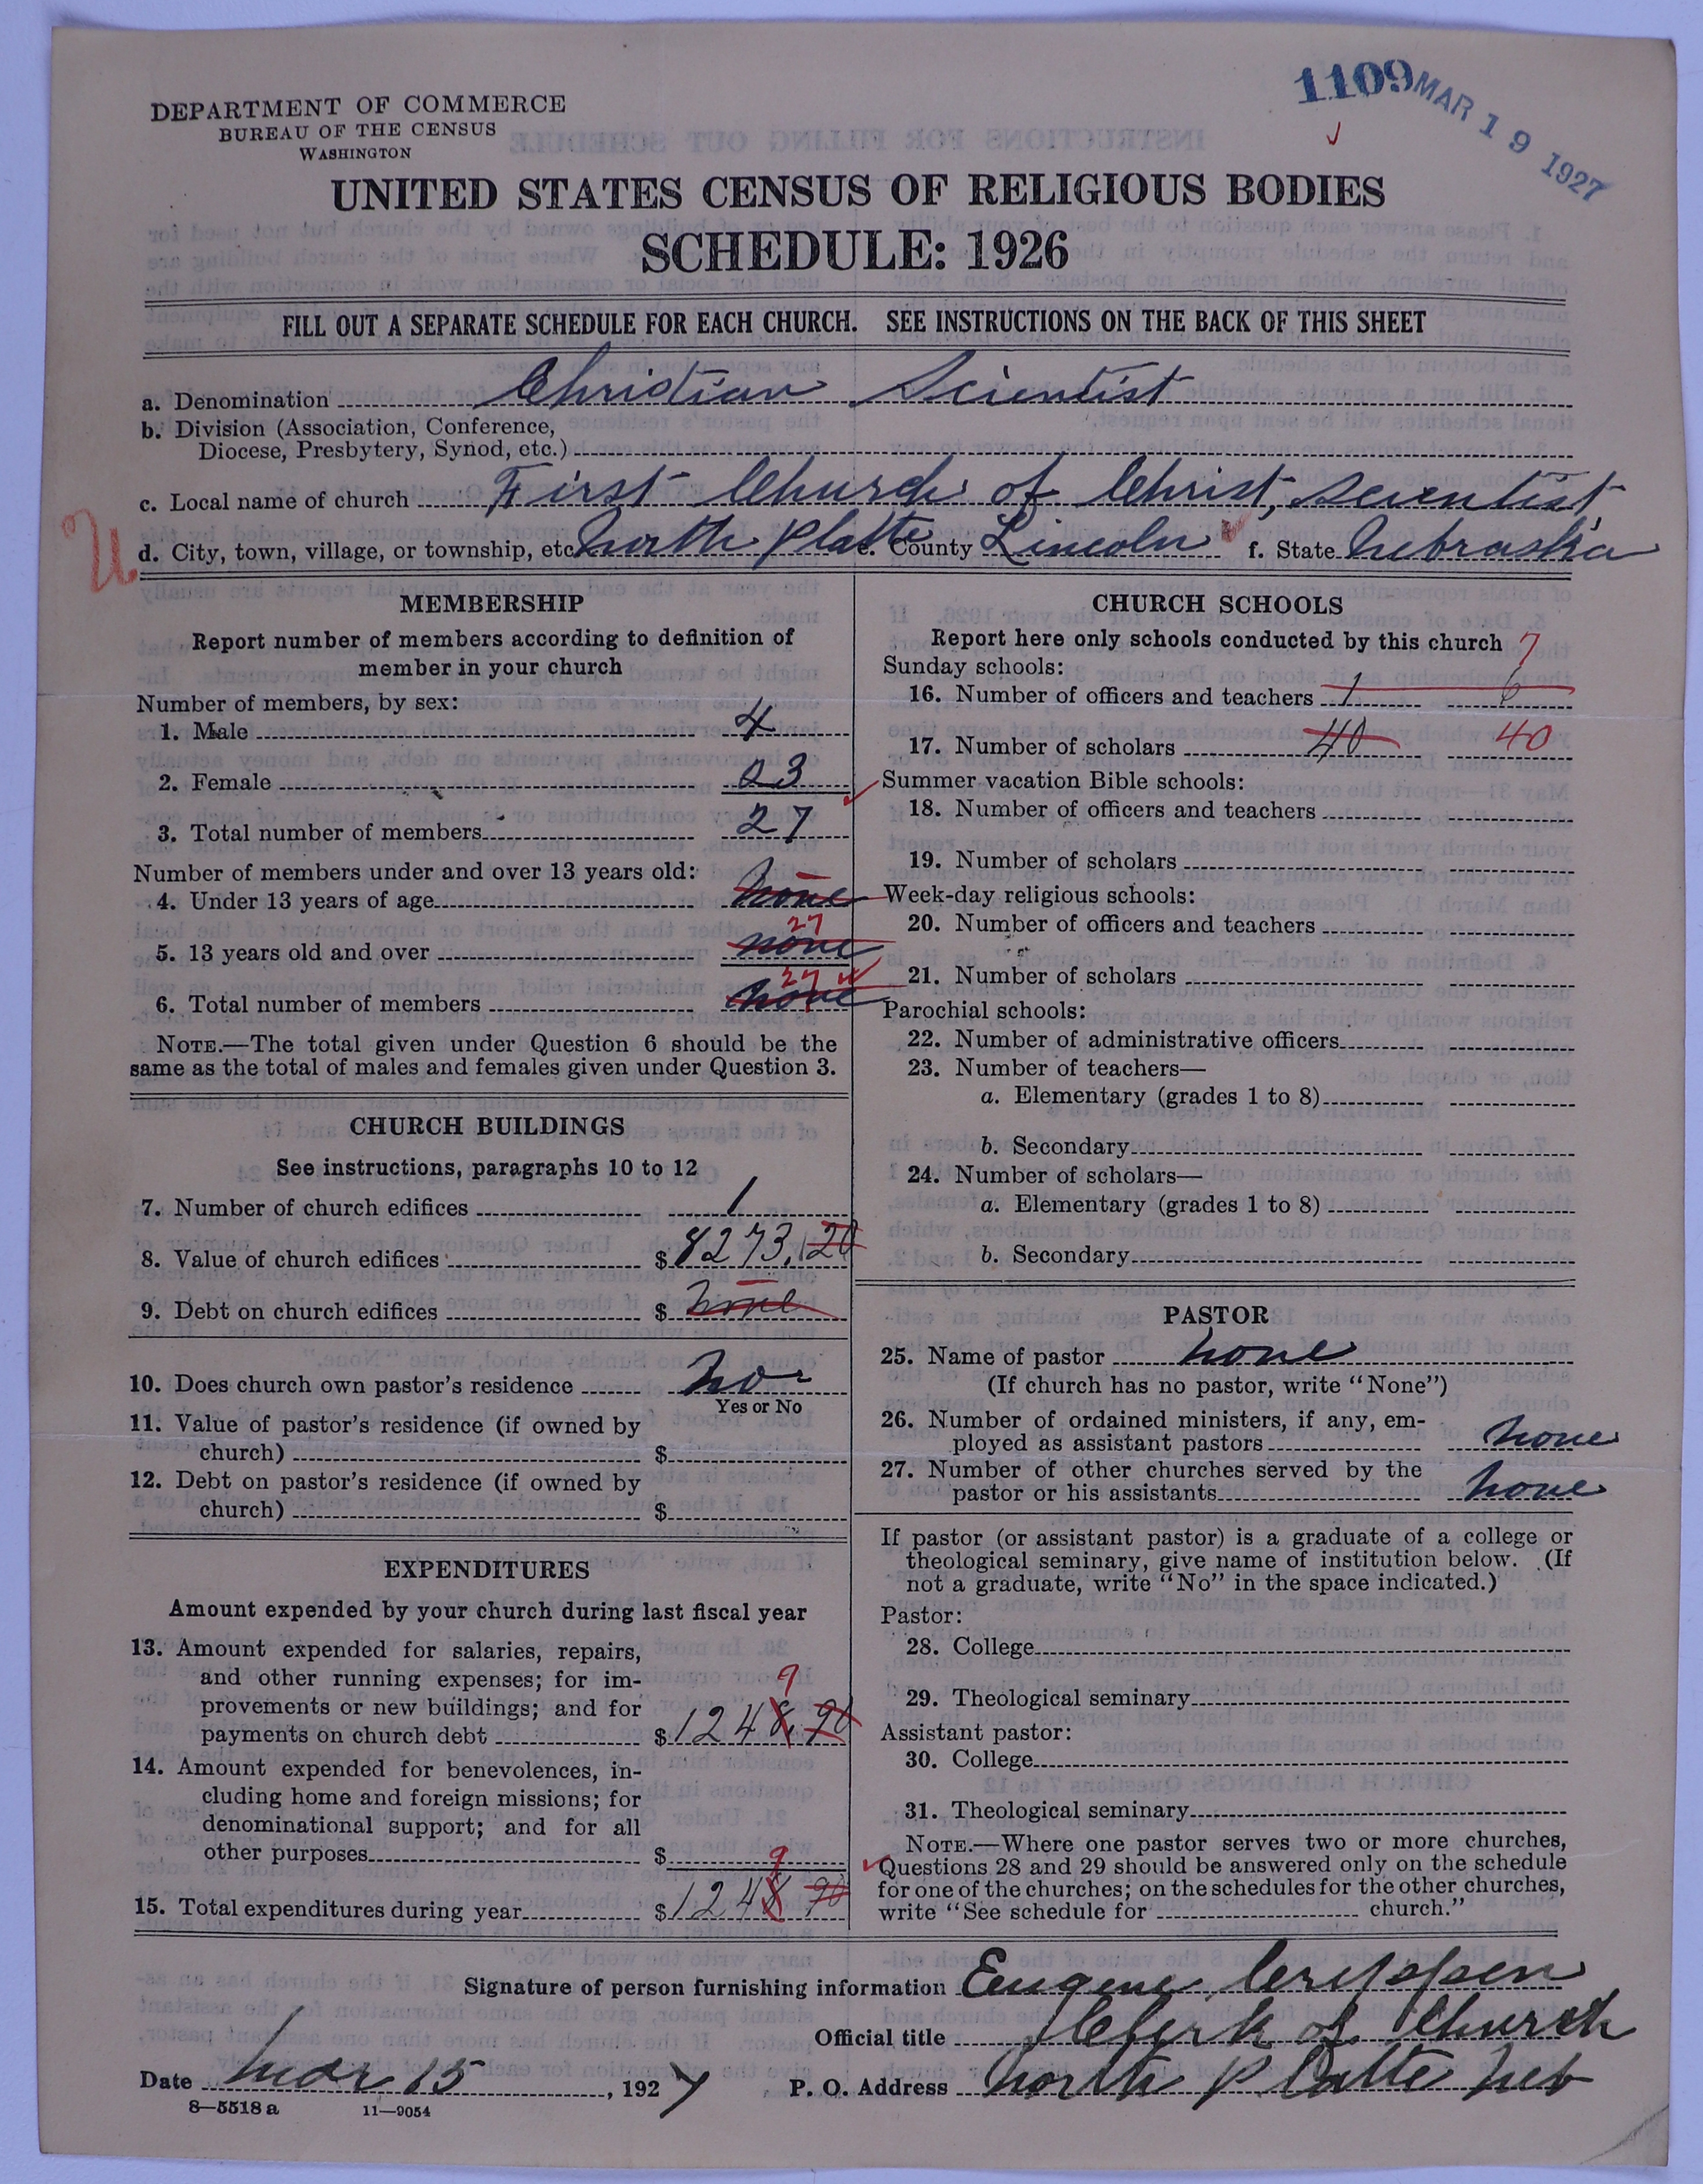 1109 MAR 19 1927
DEPARTMENT OF COMMERCE
BUREAU OF THE CENSUS
WASHINGTON
UNITED STATES CENSUS OF RELIGIOUS BODIES
SCHEDULE: 1926
FILL OUT A SEPARATE SCHEDULE FOR EACH CHURCH. SEE INSTRUCTIONS ON THE BACK OF THIS SHEET
a. Denomination Christian Scientist
b. Division (Association, Conference,
Diocese, Presbytery, Synod, etc.)
c. Local name of church First Church of Christ, Scientist,
U
d. City, town, village, or township, etc. North Platte e. County Lincoln f. State Nebraska
MEMBERSHIP
Report number of members according to definition of
member in your church
Number of members, by sex:
1. Male 4
2. Female 23
3. Total number of members 27
Number of members under and over 13 years old:
4. Under 13 years of age none
27
5. 13 years old and over none
27
6. Total number of members none
NOTE.—The total given under Question 6 should be the
same as the total of males and females given under Question 3.
CHURCH BUILDINGS
See instructions, paragraphs 10 to 12
7. Number of church edifices 1
8. Value of church edifices $ 8273.20
9. Debt on church edifices $ none
10. Does church own pastor's residence No
Yes or No
11. Value of pastor's residence (if owned by
church) $
12. Debt on pastor's residence (if owned by
church) $
EXPENDITURES
Amount expended by your church during last fiscal year
13. Amount expended for salaries, repairs,
and other running expenses; for im-
provements or new buildings; and for
9
payments on church debt $ 1248.90
14. Amount expended for benevolences, in-
cluding home and foreign missions; for
denominational support; and for all
other purposes $
9
15. Total expenditures during year $ 1248 90
CHURCH SCHOOLS
Report here only schools conducted by this church
7
Sunday schools:
16. Number of officers and teachers 1 6
17. Number of scholars 40 40
Summer vacation Bible schools:
18. Number of officers and teachers
19. Number of scholars
Week-day religious schools:
20. Number of officers and teachers
21. Number of scholars
Parochial schools:
22. Number of administrative officers
23. Number of teachers—
a. Elementary (grades 1 to 8)
b. Secondary
24. Number of scholars—
a. Elementary (grades 1 to 8)
b. Secondary
PASTOR
25. Name of pastor none
(If church has no pastor, write "None")
26. Number of ordained ministers, if any, em-
ployed as assistant pastors none
27. Number of other churches served by the
pastor or his assistants none
If pastor (or assistant pastor) is a graduate of a college or
theological seminary, give name of institution below. (If
not a graduate, write "No" in the space indicated.)
Pastor:
28. College
29. Theological seminary
Assistant pastor:
30. College
31. Theological seminary
NOTE.—Where one pastor serves two or more churches,
Questions 28 and 29 should be answered only on the schedule
for one of the churches; on the schedules for the other churches,
write "See schedule for church."
Signature of person furnishing information Eugene Crippen
Official title Clerk of Church
Date Mar 15, 1927 P. O. Address North Platte Neb
8—5518 a 11—9054